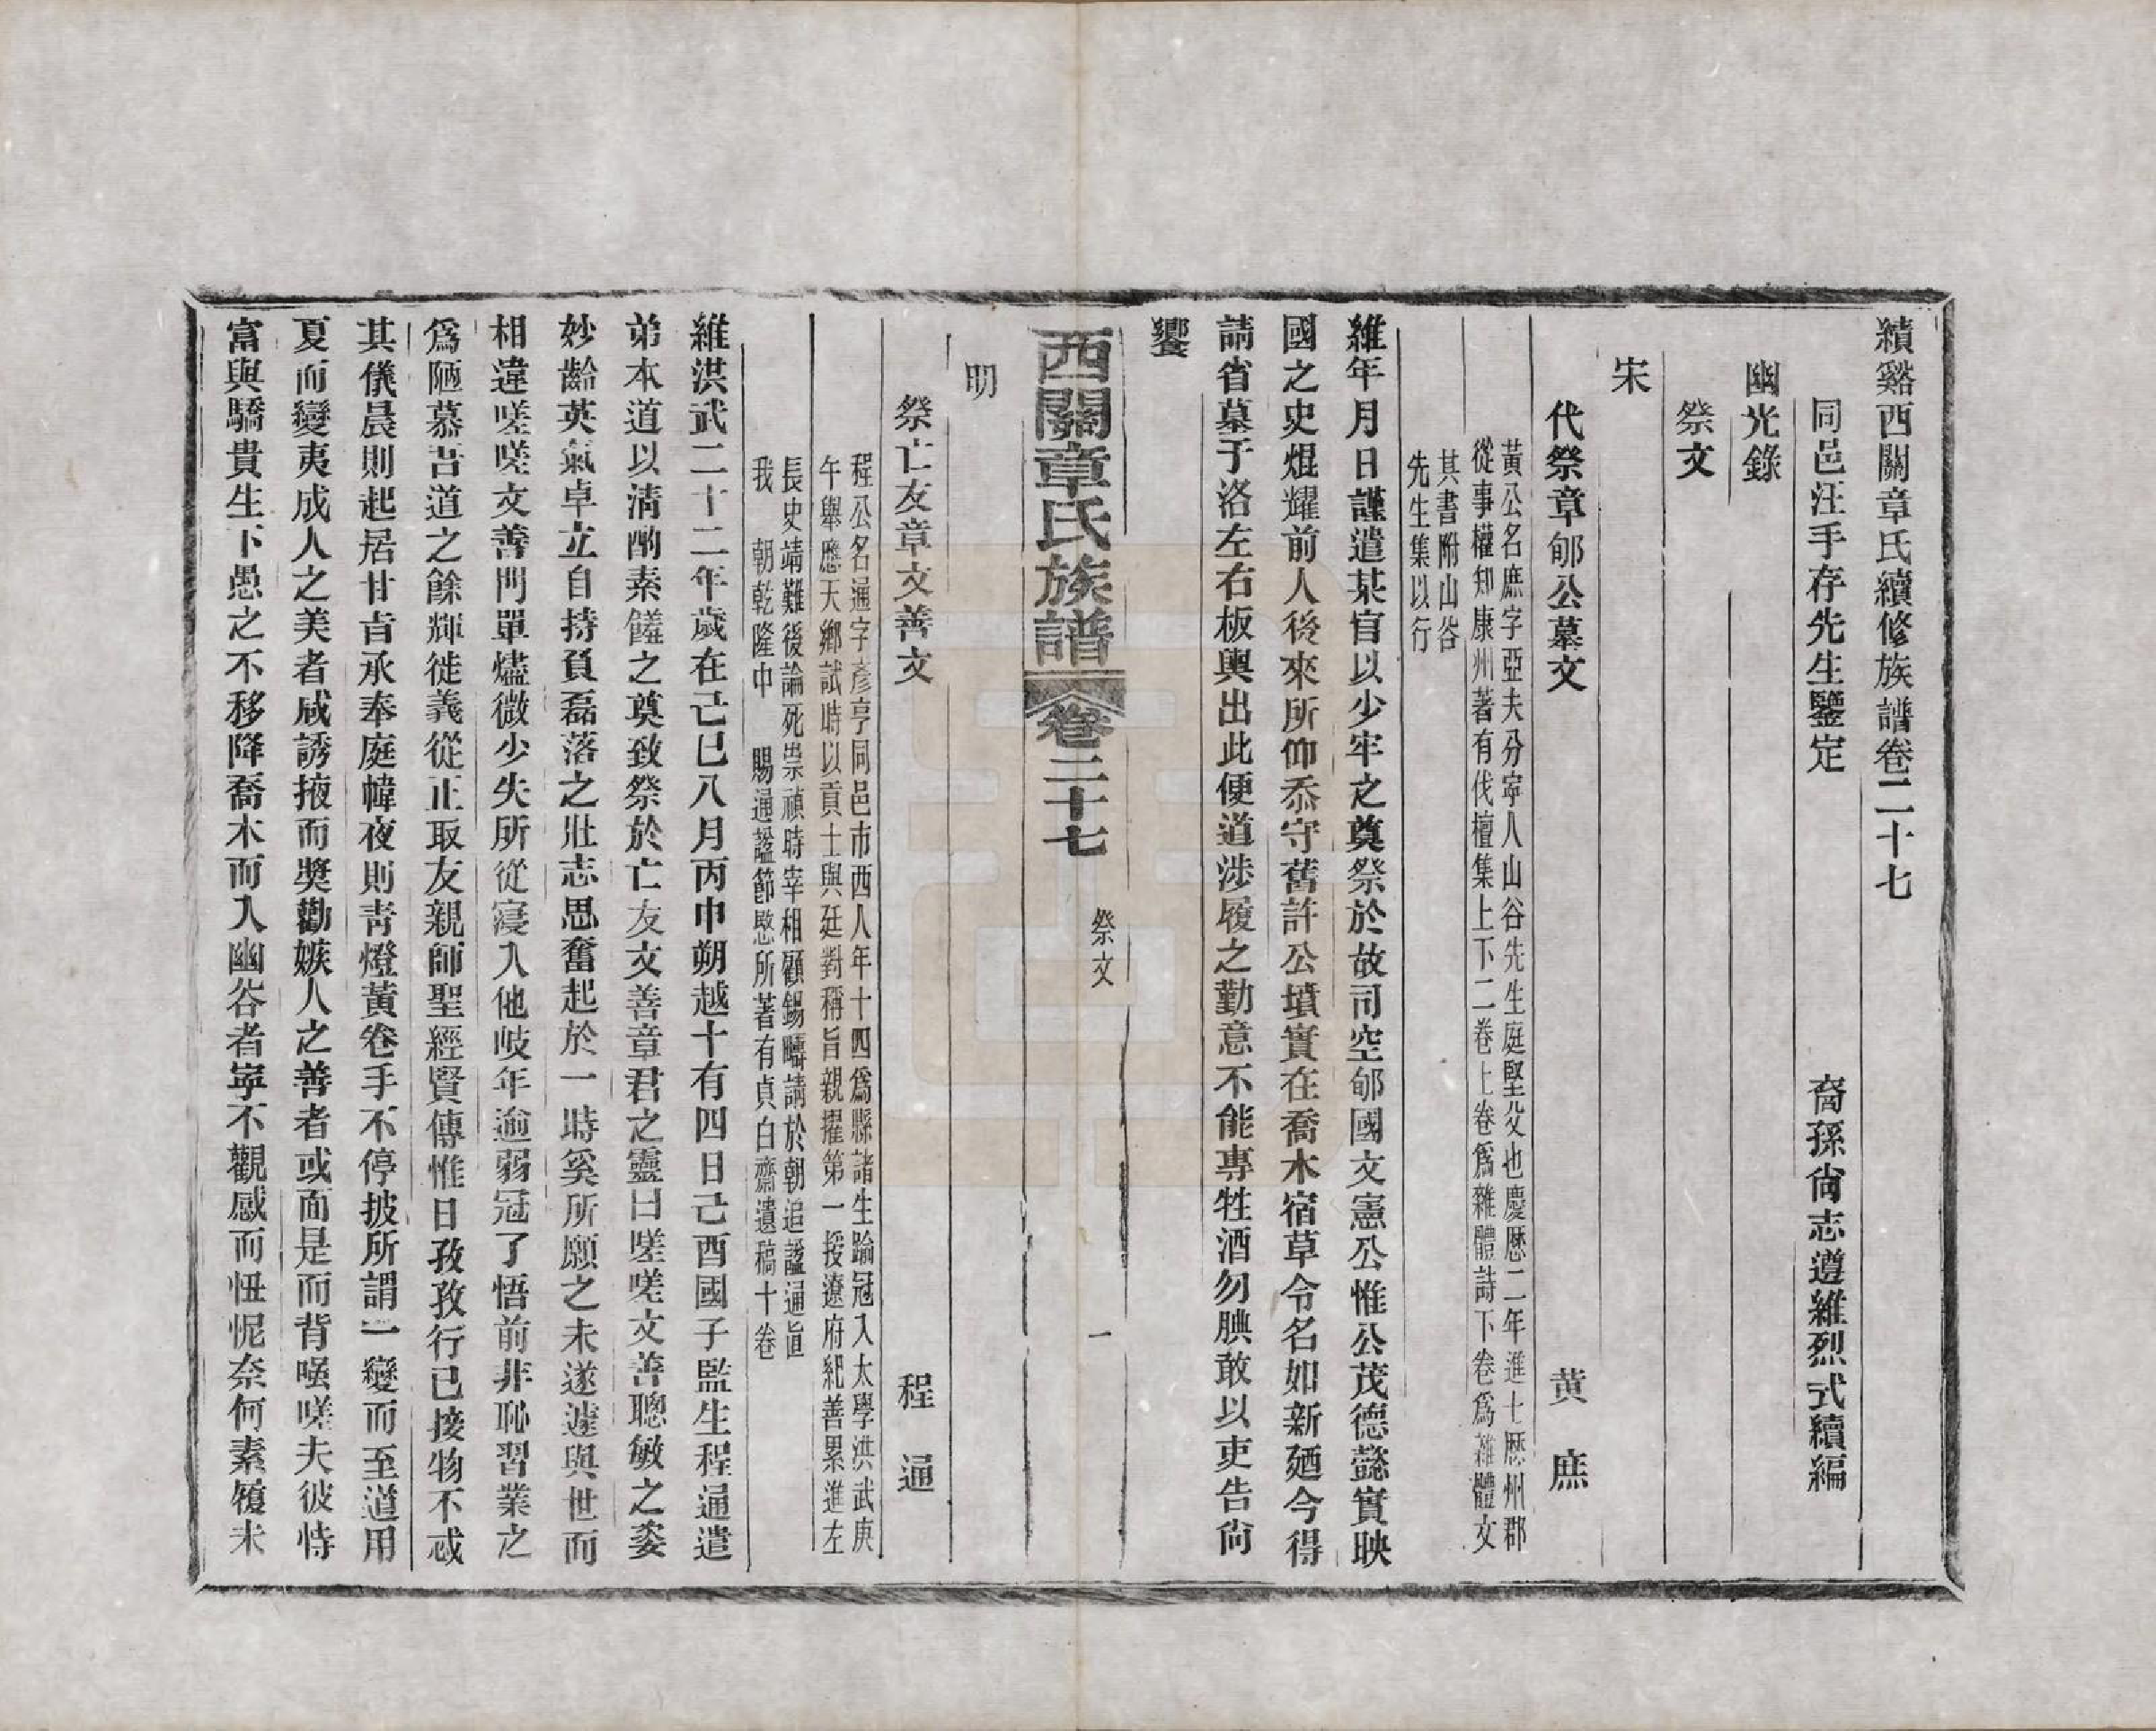 績谿西關章氏續修族譜卷二十七
同邑汪手存先生鑒定
裔孫尙志遵維烈式續編
幽光錄
祭文
宋
代祭章郇公墓文
黄庶
黃公名庶字亞夫分寧人山谷先生庭堅父也慶歷二年進士歷州郡
從事權知康州著有伐檀集上下二卷上卷爲雜體詩下卷爲雜體文
其書附山谷
先生集以行
維年月日謹遣某官以少牢之奠祭於故司空郇國文憲公惟公茂德懿實映
國之史焜耀前人後來所仰忝守舊許公墳實在喬木宿草令名如新廼今得
請省墓于洛左右板輿出此便道涉履之勤意不能專牲酒勿腆敢以吏告尙
饗
西關章氏族譜
卷二十七
祭文
一
明
祭亡友章文善文
程通
程公名通字彥亨同邑市西人年十四爲縣諸生踰冠入太學洪武庚
午舉應天鄉試時以貢士與廷對稱旨親擢第一授遼府紀善累進左
長史靖難後論死崇禎時宰相顧錫疇請於朝追諡通旨
我 朝乾隆中 賜通諡節愍所著有貞白齋遺稿十卷
維洪武二十二年歲在己巳八月丙申朔越十有四日己酉國子監生程通遣
弟本道以清酌素饈之奠致祭於亡友文善章君之靈曰嗟嗟文善聰敏之姿
妙齡英氣卓立自持負磊落之壯志思奮起於一時奚所願之未遂遽與世而
相違嗟嗟文善門單燼微少失所從寖入他岐年逾弱冠了悟前非恥習業之
爲陋慕吾道之餘輝徙義從正取友親師聖經賢傳惟日孜孜行己接物不忒
其儀晨則起居甘旨承奉庭幃夜則靑燈黃卷手不停披所謂一變而至道用
夏而變夷成人之美者咸誘掖而奬勸嫉人之善者或面是而背嗤嗟夫彼恃
富與驕貴生下愚之不移降喬木而入幽谷者寧不觀感而忸怩奈何素履未